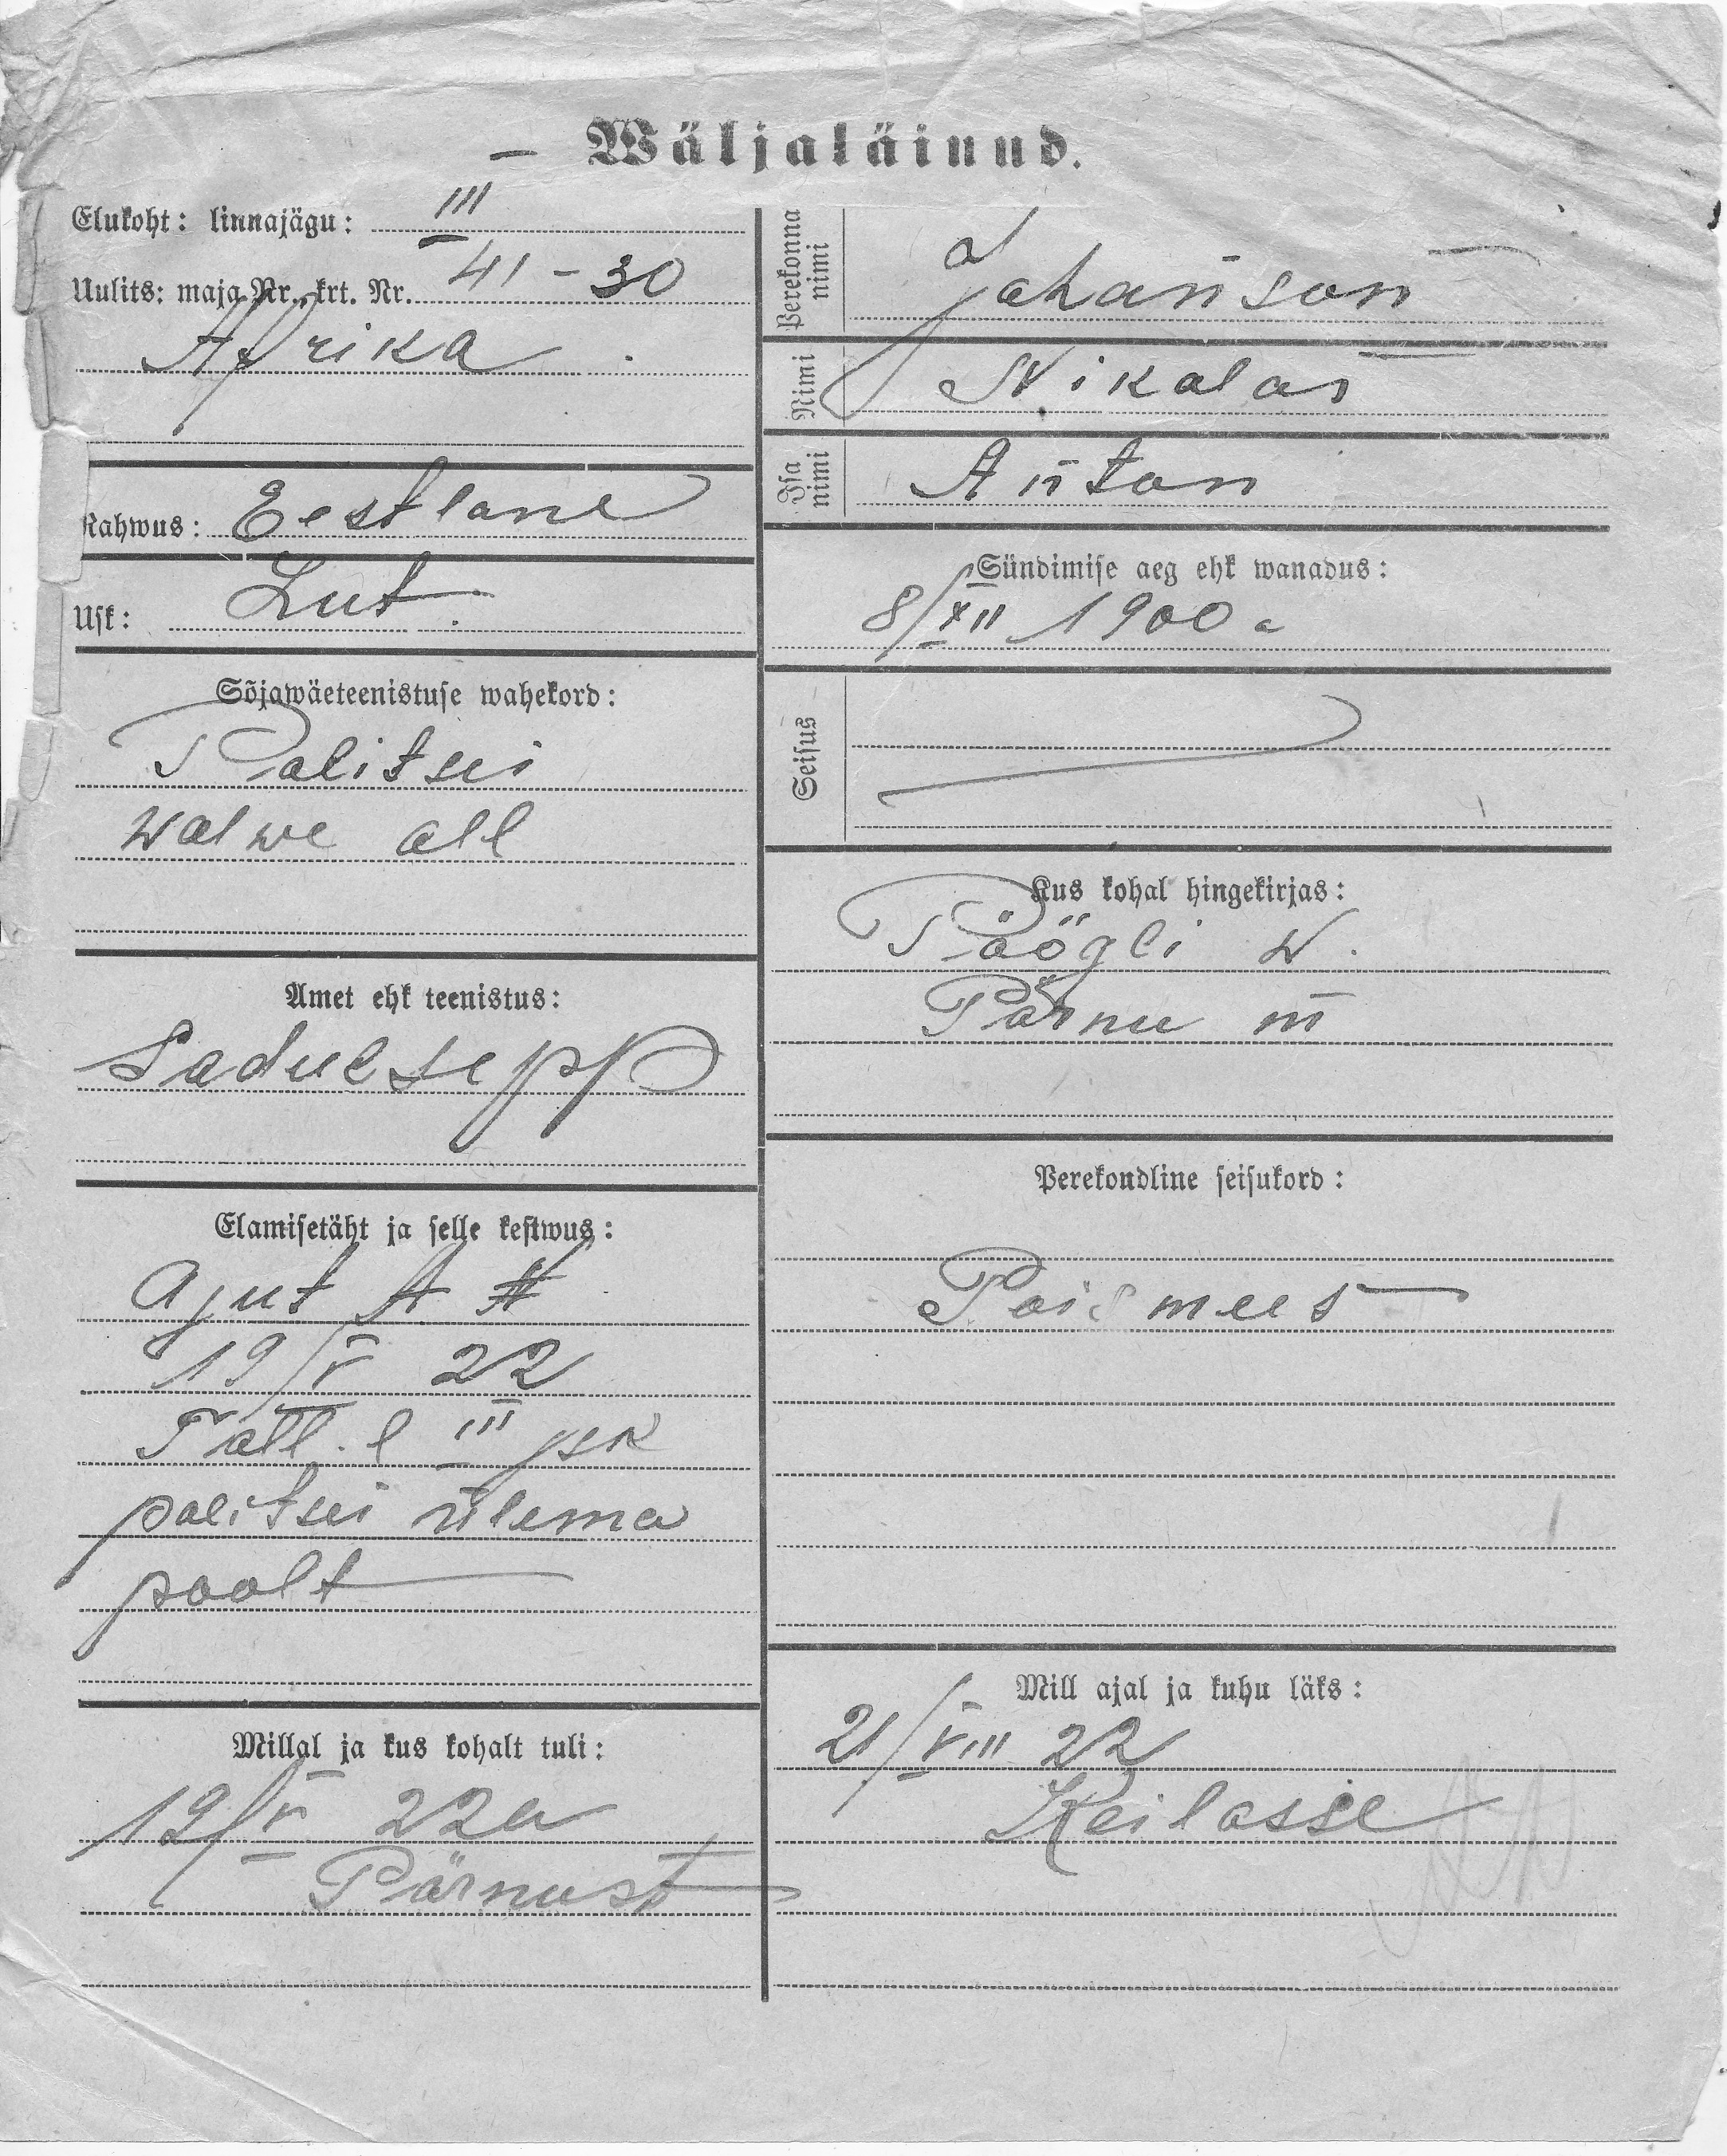 — Wäljaläinud.
Elukoht: linnajägu: III
Uulits: maja Nr., krt. Nr. 41 – 30
Afrika
Rahwus: Eestlane
Usk: Lut.
Sõjawäeteenistuse wahekord:
Politsei
walwe all
Amet ehk teenistus:
Sadulsepp
Elamisetäht ja selle kestwus:
Ajut A #
19/V 22
Tall. l III jsk
politsei ülema
poolt
Millal ja kus kohalt tuli:
19/V 22 a
Pärnust
Perekonna
nimi
Johanson
Nimi
Nikolai
Isa
nimi
Anton
Sündimise aeg ehk wanadus:
8/XII 1900 a
Seisus
Kus kohal hingekirjas:
Pöögli w.
Pärnu m
Perekondline seisukord:
Poismees
Mill ajal ja kuhu läks:
21/VIII 22
Keilasse